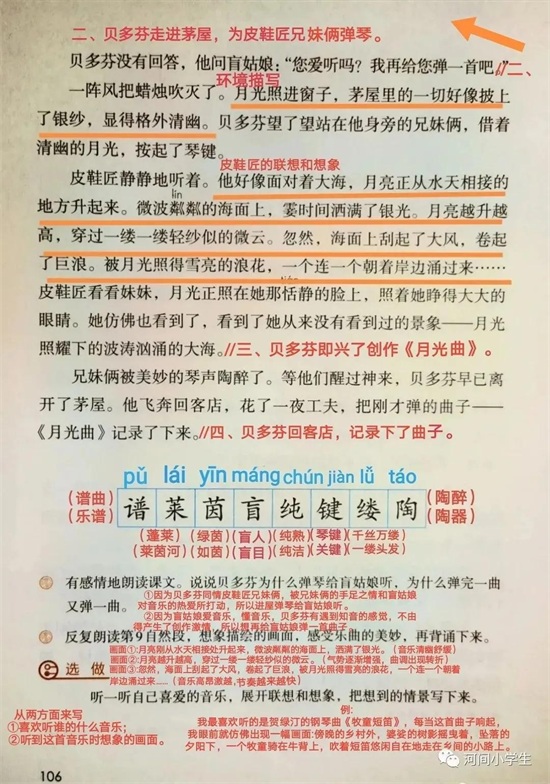 二、贝多芬走进茅屋，为皮鞋匠兄妹俩弹琴。
贝多芬没有回答，他问盲姑娘：“您爱听吗？我再给您弹一首吧。”//二、
环境描写
一阵风把蜡烛吹灭了。月光照进窗子，茅屋里的一切好像披上
了银纱，显得格外清幽。贝多芬望了望站在他身旁的兄妹俩，借着
清幽的月光，按起了琴键。
皮鞋匠的联想和想象
皮鞋匠静静地听着。他好像面对着大海，月亮正从水天相接的
lín
地方升起来。微波粼粼的海面上，霎时间洒满了银光。月亮越升越
高，穿过一缕一缕轻纱似的微云。忽然，海面上刮起了大风，卷起
了巨浪。被月光照得雪亮的浪花，一个连一个朝着岸边涌过来……
皮鞋匠看看妹妹，月光正照在她那恬静的脸上，照着她睁得大大的
眼睛。她仿佛也看到了，看到了她从来没有看到过的景象——月光
照耀下的波涛汹涌的大海。//三、贝多芬即兴了创作《月光曲》。
兄妹俩被美妙的琴声陶醉了。等他们醒过神来，贝多芬早已离
开了茅屋。他飞奔回客店，花了一夜工夫，把刚才弹的曲子——
《月光曲》记录了下来。//四、贝多芬回客店，记录下了曲子。
pǔ lái yīn máng chún jiàn lǚ táo
（谱曲） 谱莱茵盲纯键缕陶 （陶醉）
（乐谱） （陶器）
（蓬莱）（绿茵）（盲人）（纯熟）（琴键）（千丝万缕）
（莱茵河）（如茵）（盲目）（纯洁）（关键）（一缕头发）
有感情地朗读课文。说说贝多芬为什么弹琴给盲姑娘听，为什么弹完一曲
又弹一曲。
①因为贝多芬同情皮鞋匠兄妹俩，被兄妹俩的手足之情和盲姑娘
对音乐的热爱所打动，所以进屋弹琴给盲姑娘听。
②因为盲姑娘爱音乐，懂音乐，贝多芬有遇到知音的感觉，不由
得产生了创作激情，所以想再给盲姑娘弹一首曲子。
反复朗读第9自然段，想象描绘的画面，感受乐曲的美妙，再背诵下来。
画面①:月亮刚从水天相接处升起来，微波粼粼的海面上，洒满了银光。（音乐清幽舒缓）
画面②:月亮越升越高，穿过一缕一缕轻纱似的微云。（气势逐渐增强，曲调出现转折）
选做
画面③:忽然，海面上刮起了大风，卷起了巨浪，被月光照得雪亮的浪花，一个连一个朝着
岸边涌过来——（音乐高昂激越,节奏越来越快）
听一听自己喜爱的音乐，展开联想和想象，把想到的情景写下来。
从两方面来写
①喜欢听谁的什么音乐；
②听到这首音乐时想象的画面。
例：
我最喜欢听的是贺绿汀的钢琴曲《牧童短笛》，每当这首曲子响起，
我眼前就仿佛出现一幅画面:傍晚的乡村外，婆娑的树影摇曳着，坠落的
夕阳下，一个牧童骑在牛背上，吹着短笛悠闲自在地走在乡间的小路上。
106
河间小学生